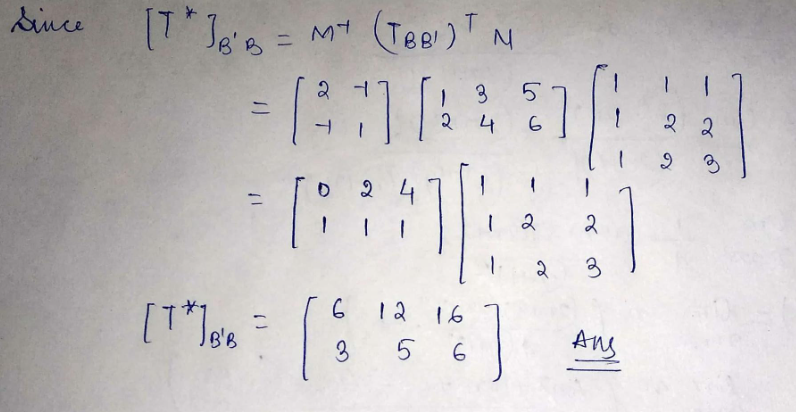 Since [T*]B'B = M⁻¹ (TBB')ᵀ N
= [2 -1; -1 1] [1 3 5; 2 4 6] [1 1 1; 1 2 2; 1 2 3]
= [0 2 4; 1 1 1] [1 1 1; 1 2 2; 1 2 3]
[T*]B'B = [6 12 16; 3 5 6] Ans